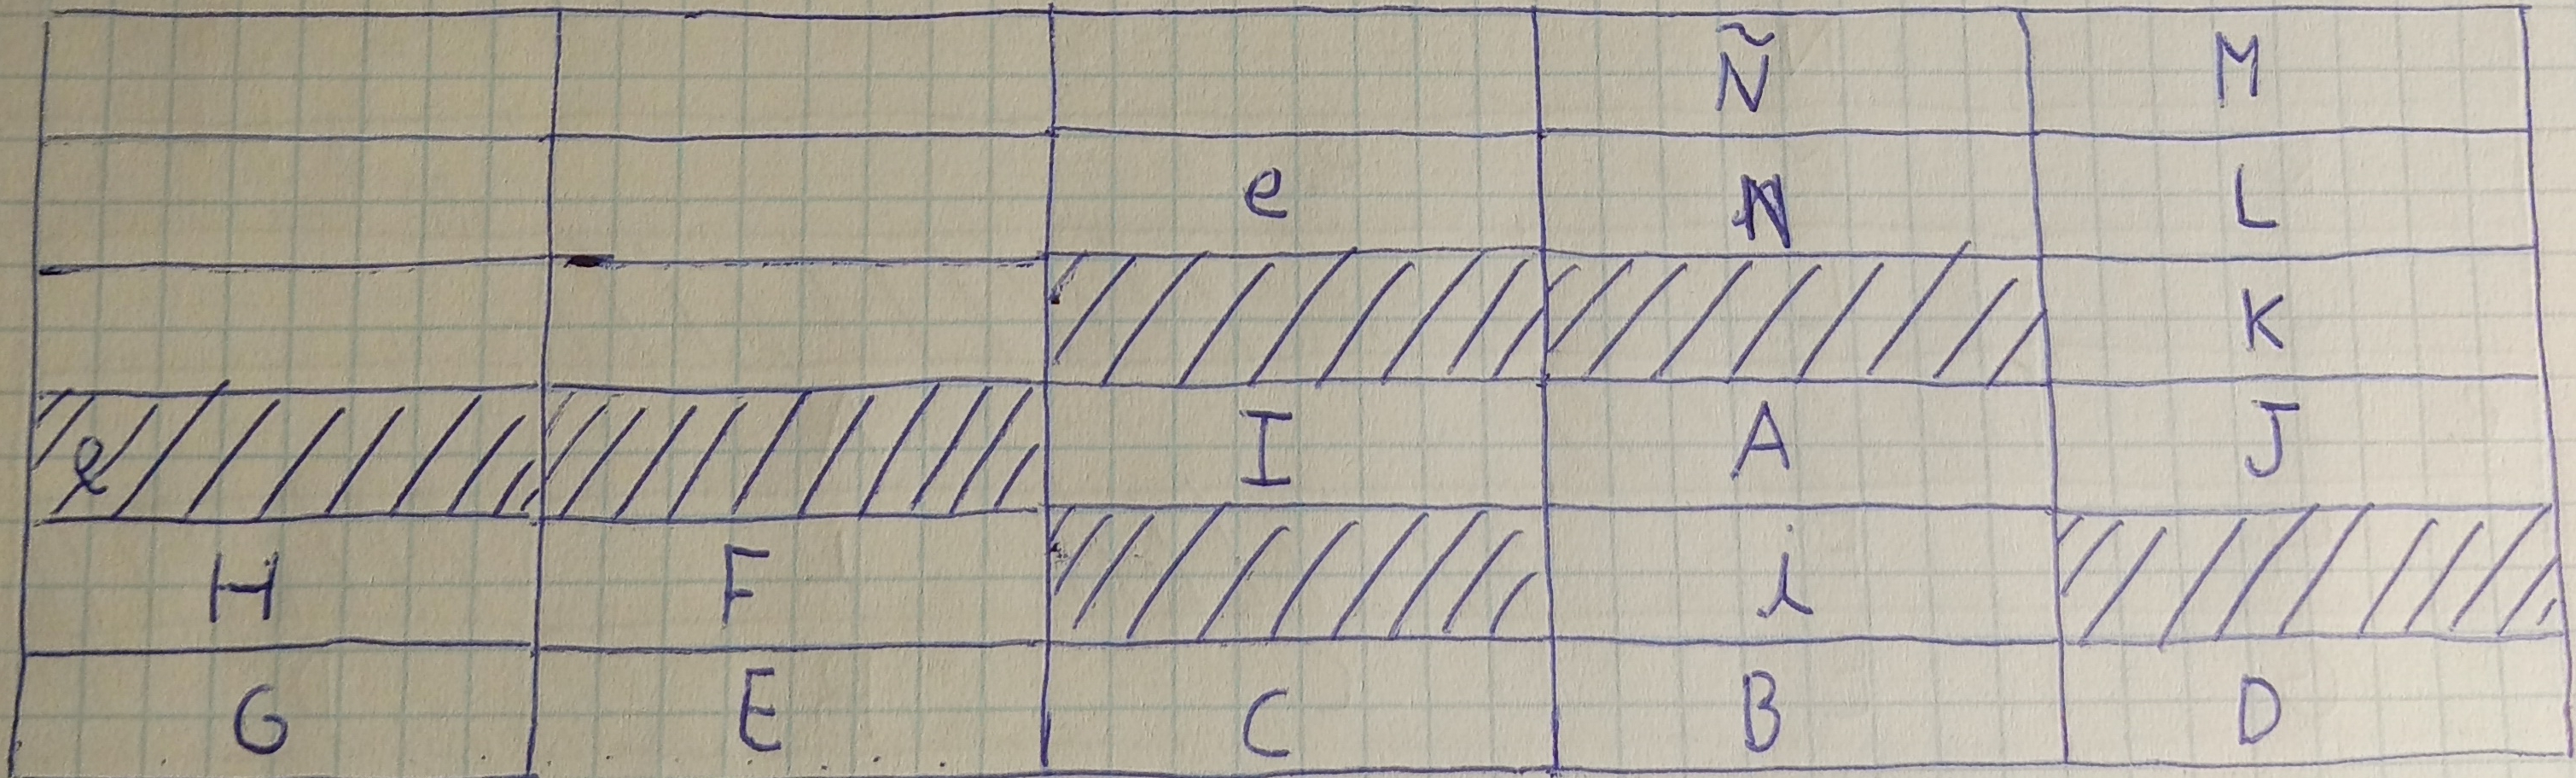 Ñ M
e N L
K
I A J
H F i
G E C B D